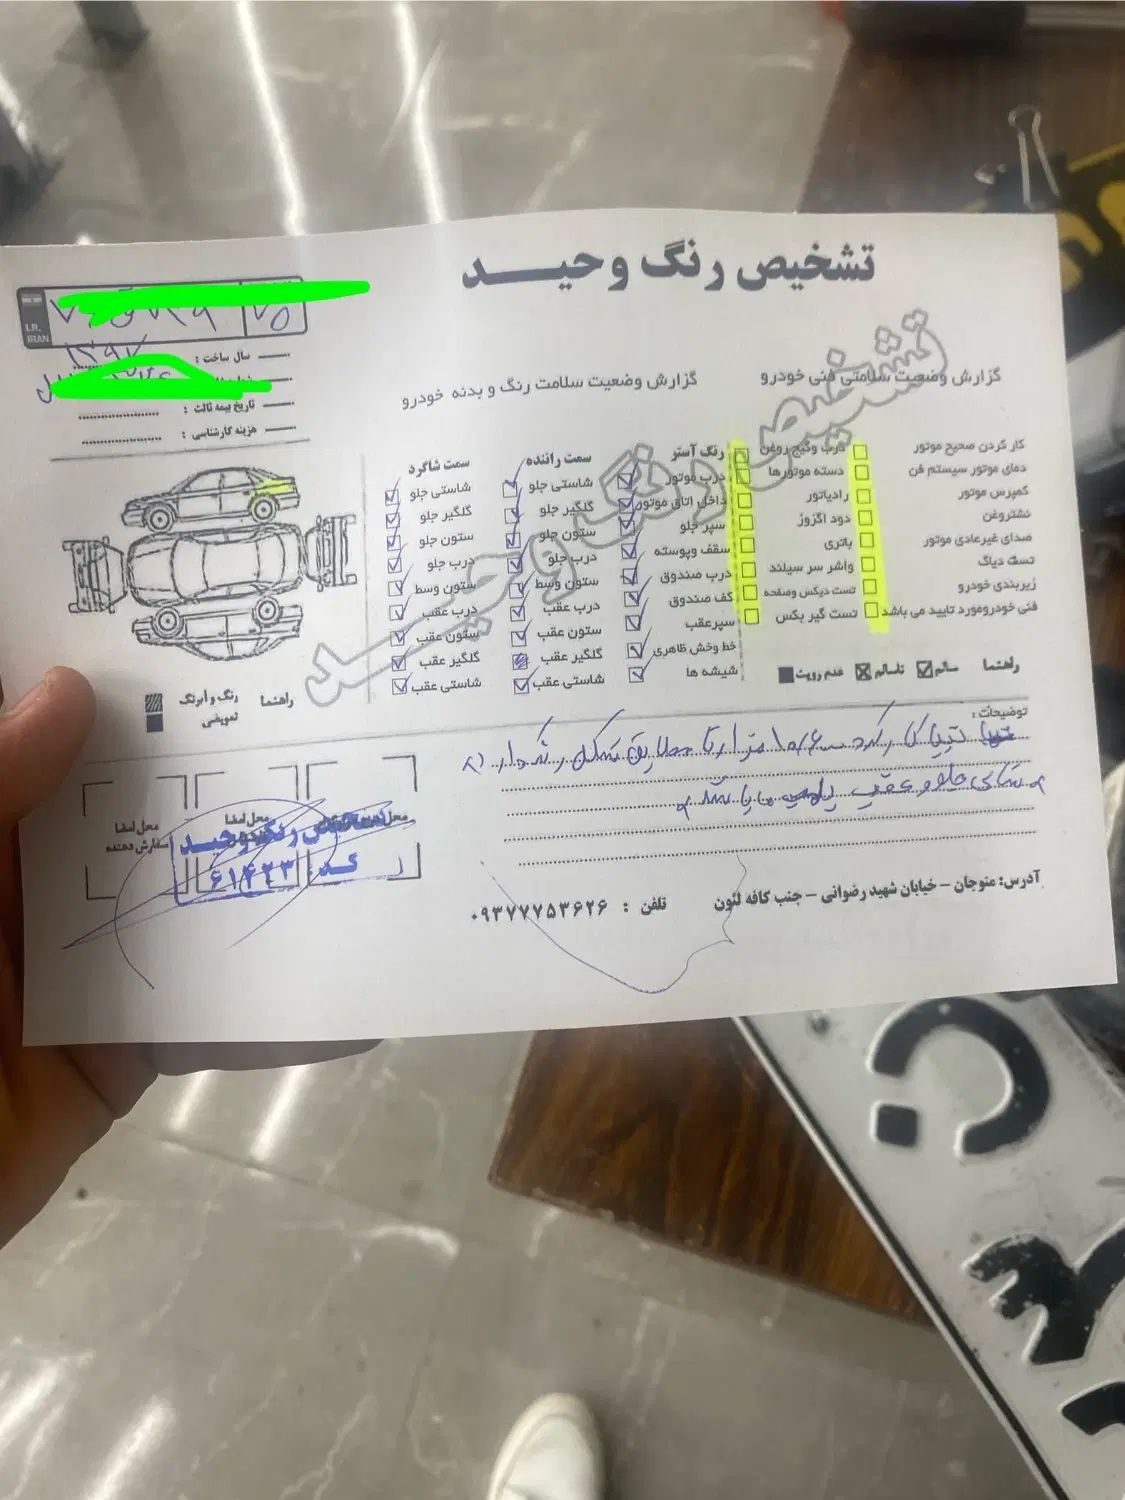 تشخیص رنگ وحیــــد
I.R.
IRAN
۷۵
سال ساخت : ۱۳۹۷
تاریخ بیمه ثالث :
هزینه کارشناسی :
گزارش وضعیت سلامتی فنی خودرو
کار کردن صحیح موتور
دمای موتور سیستم فن
کمپرس موتور
نشتروغن
صدای غیرعادی موتور
تست دیاگ
زیربندی خودرو
فنی خودرومورد تایید می باشد
درب وگیج روغن
دسته موتورها
رادیاتور
دود اگزوز
باتری
واشر سر سیلند
تست دیکس وصفحه
تست گیر بکس
راهنما سالم ناسالم عدم رویت
گزارش وضعیت سلامت رنگ و بدنه خودرو
رنگ آستر
درب موتور
داخل اتاق موتور
سپر جلو
سقف وپوسته
درب صندوق
کف صندوق
سپرعقب
خط وخش ظاهری
شیشه ها
سمت راننده
شاستی جلو
گلگیر جلو
ستون جلو
درب جلو
ستون وسط
درب عقب
ستون عقب
گلگیر عقب
شاستی عقب
سمت شاگرد
شاستی جلو
گلگیر جلو
ستون جلو
درب جلو
ستون وسط
درب عقب
ستون عقب
گلگیر عقب
شاستی عقب
راهنما رنگ و آبرنگ
تعویضی
تشخیص رنگ وحیـــد
توضیحات:
تیبا کارکرد
جلو و عقب
محل امضا
محل امضا
محل امضا
سفارش دهنده
تشخیص رنگ وحیـــد
کد ۶۱۴۲۳
آدرس: منوجان – خیابان شهید رضوانی – جنب کافه لئون تلفن : ۰۹۳۷۷۷۵۳۶۲۶